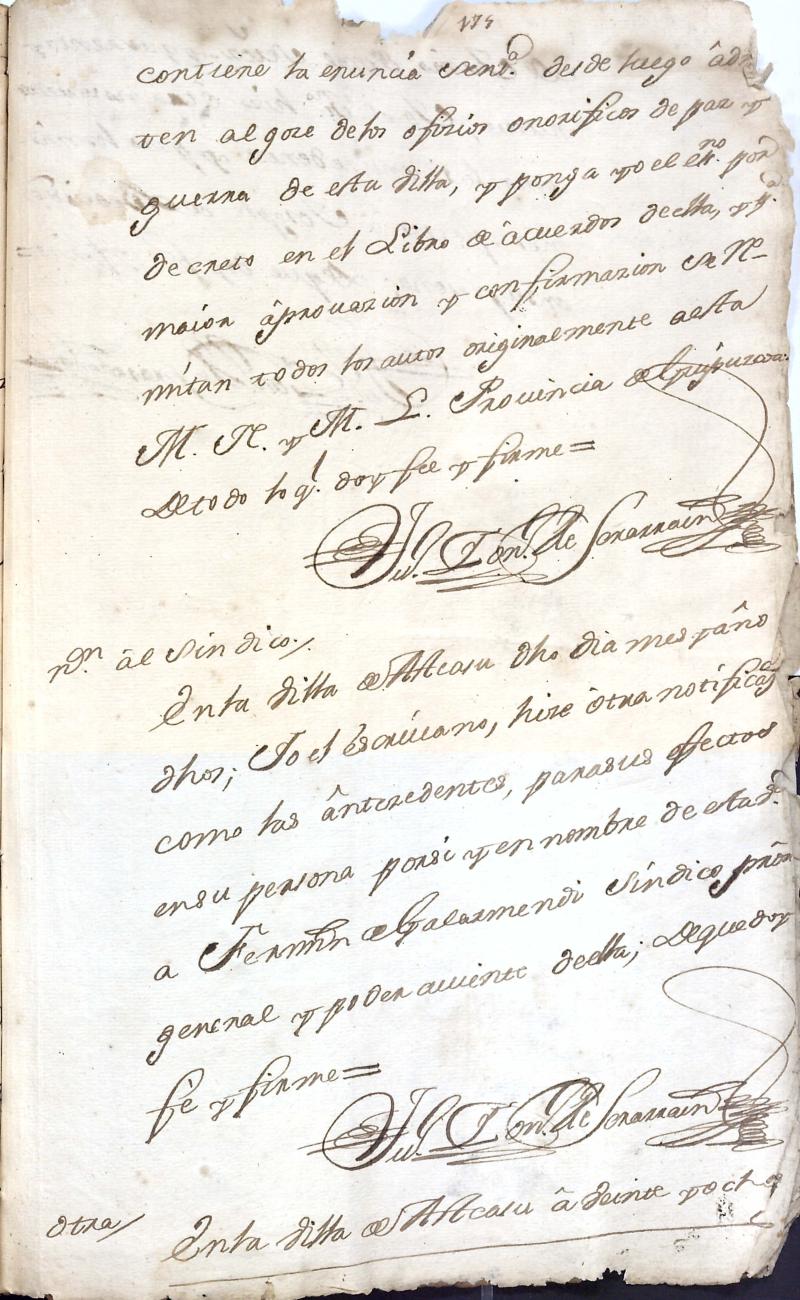 175
contiene la enunciâ sent.ª desde luego âdm
ten al goze delos ofizios onorificos de paz y
guerra de esta villa, y ponga yo el es.no por
decreto en el Libro de âcuerdos deella, y p.ª
maior âprovazion y confirmazion se Re=
mitan todos los autos originalmente aesta
M. N. y M. L. Provincia de Guipuzcoa:
De todo lo q.l doy fee y firme=
de Sorarrain
n.on âel Sindico./
Enla villa de Ataun dho dia mes y año
dhos; Yo el êscrivano, hize ôtra notificaz.on
como las ântezedentes, parasus efectos
ensu persona porsi y en nombre de estad.ª
a Fermin de Galarmendi Sindico prôr
general y poder aviente deella; Dequedoy
fê y firme=
de Sorarrain
ôtra/
Enla villa de Ataun â veinte y ocho